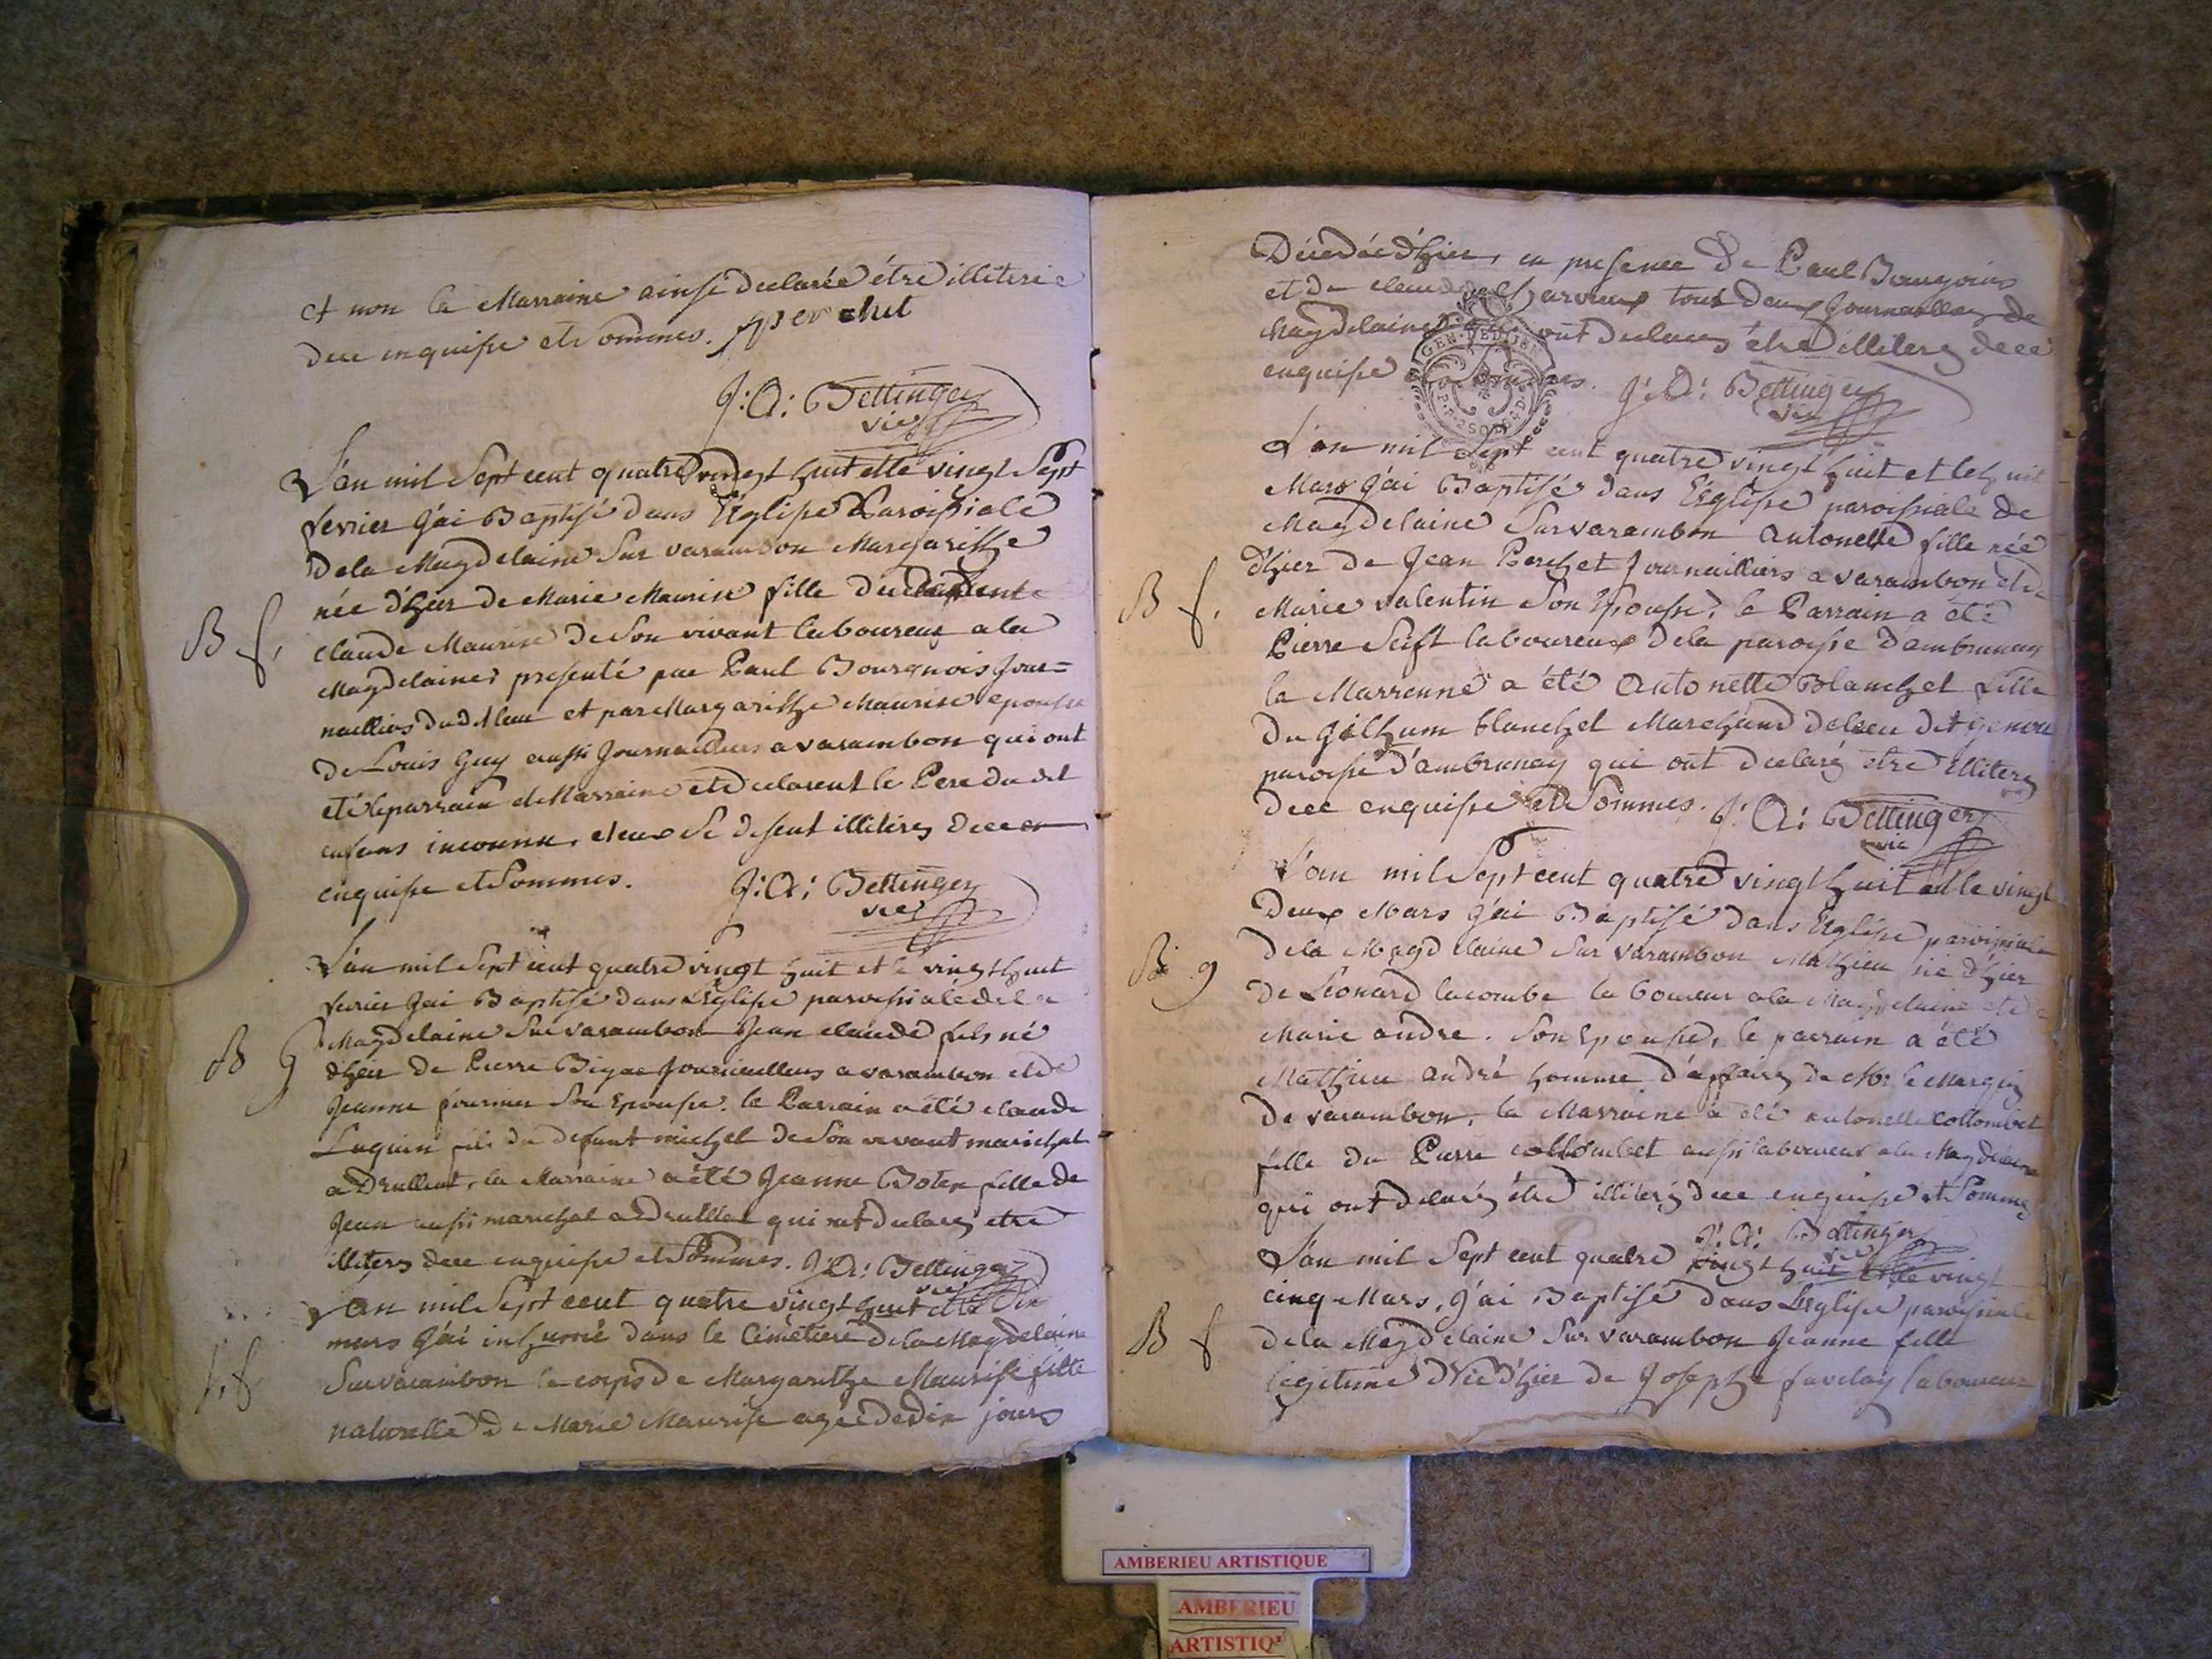 et non la Marraine ainsi declarée étre illiterée
dece enquise et Sommes. perchet
J: A: Bettinger
vic
L'an mil Sept cent quatre vingt huit et le vingt Sept
fevrier J'ai Baptisé dans l'Eglise Paroissiale
de la Magdelaine Sur varambon Margarithe
née d'hier de Marie Maurise fille du
B f.
claude Maurise de Son vivant laboureur a la
Magdelaine, presenté par Paul Bourgnois Jour=
nailliers dud. lieu et par Margarithe Maurise epouse
de Louis Guy aussi Journailliers a varambon qui ont
eté le parrain et Marraine et declarent le Pere du dit
enfans inconnu, et eux Se disent illiterés dece
enquise et Sommes.
J: A: Bettinger
vic
L'an mil Sept cent quatre vingt huit et le vingt huit
fevrier J'ai Baptisé dans l'Eglise paroissiale de la
Magdelaine Sur varambon Jean claude fils né
B g
d'hier de Pierre Journailliers a varambon et de
Jeanne fournier Son Epouse. le Parrain a été claude
Luquin fils du defunt michel de Son vivant marichal
a Druillent, la Marraine a été Jeanne fille de
Jean aussi marichal a Druillet qui ont declarés etre
illiters dece enquise et Sommes. J: A: Bettinger
vic
L'an mil Sept cent quatre vingt huit et le Dix
mars J'ai inhumé dans le Cimetiere de la Magdelaine
f
Sur varambon le corps de Margarithe Maurise fille
naturelle de Marie Maurise agée de dix jours
Décedée d'hier, en presence de Paul Bourgoins
et de claude tous deux Journaillers de
Magdelaine ont declarés étre illiterés dece
enquise et Sommes. J: A: Bettinger
vic
GEN. DE DIJON
L'an mil Sept cent quatre vingt huit et le huit
Mars J'ai Baptisé dans l'Eglise paroissiale de
Magdelaine Sur varambon Antonette fille née
d'hier de Jean Perchet Journailliers a varambon et de
B f.
Marie valentin Son Epouse, le Parrain a été
Pierre laboureur de la paroisse d'ambrunay
la Marrenne a été Antonette Blanchet fille
du Gilhum blanchet Marchand
paroisse d'ambrunay qui ont declaré etre illiterés
dece enquise et Sommes. J: A: Bettinger
vic
L'an mil Sept cent quatre vingt huit et le vingt
Deux Mars J'ai Baptisé dans l'Eglise paroissiale
de la Magdelaine Sur varambon Mathieu né d'hier
B. g
de Léonard lacombe laboureur a la Magdelaine et de
Marie andre. Son Epouse, le parrain a été
Mathieu andré homme d'affaires de Mr le Marquis
de varambon, la Marraine a été antonette collombet
fille du Pierre collombet aussi laboureur a la Magdelaine
qui ont delarés étre illiterés dece enquise et Sommes
J: A: Bettinger
vic
L'an mil Sept cent quatre vingt huit et le vingt
cinq Mars, J'ai Baptisé dans l'Eglise paroissiale
B f
de la Magdelaine Sur varambon Jeanne fille
légitime Née d'hier de Josephe favelay laboureur
AMBERIEU ARTISTIQUE
AMBERIEU
ARTISTIQ